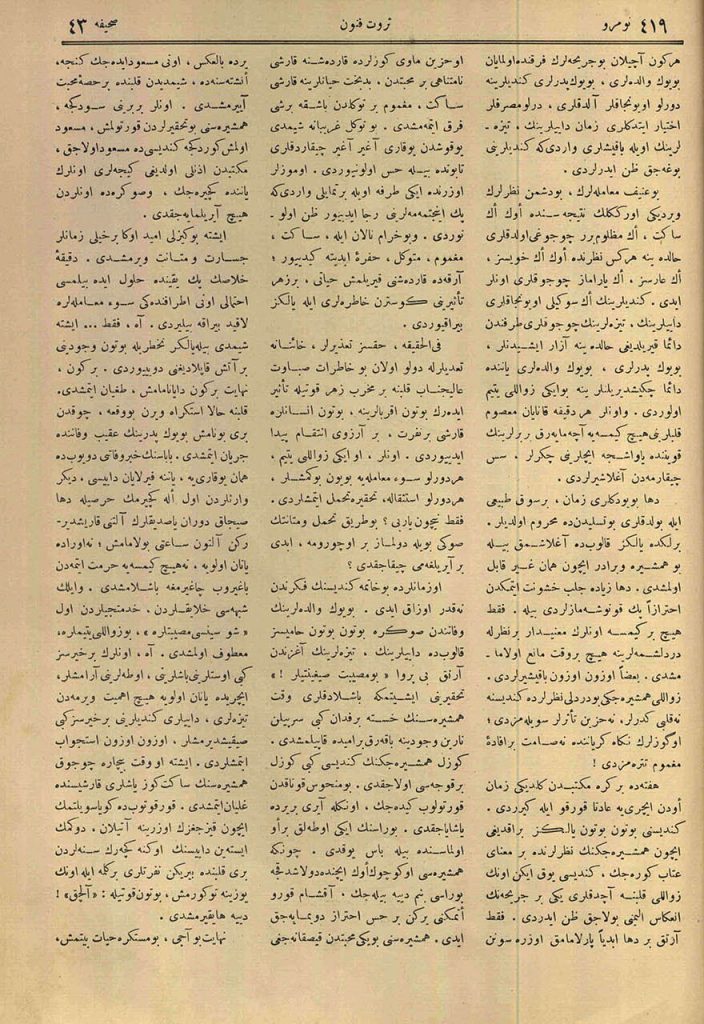 ٤١٩ نومرو
ثروت فنون
صحیفه ٤٣
هركون آچیلان بو جریحه‌لرك فرقنده اولمایان
بویوك والده‌لری ، بویوك پدرلری كندیلرینه
دورلو اویونجاقلر آلدقلری ، درلو مصرفلر
اختیار ایتدكلری زمان داییلرینك ، تیزه ـ
لرینك اویله باقیشلری واردی كه كندیلرینی
بوغه‌جق ظن ایدرلردی .
بو عنیف معامله‌لرك ، بو دشمن نظرلرك
ویردیكی اورككلك نتیجه‌سنده اوك أك
ساكت ، أك مظلوم بر چوجوغی اولدقلری
حالده ینه هركس نظرنده أوك أك خویسز ،
أك عارسز ، أك یاراماز چوجوقلری اونلر
ایدی . كندیلرینك أك سوكیلی اویونجاقلری
داییلرینك ، تیزه‌لرینك چوجوقلری طرفندن
دائما قیریلدیغی حالده ینه آزار ایشیدنلر ،
بویوك پدرلری ، بویوك والده‌لری یاننده
دائما چكیشدیریلنلر ینه بو ایكی زواللی یتیم
اولوردی . و اونلر هر دقیقه قانایان معصوم
قلبلرینی هیچ كیمسه‌یه آچه‌مایه‌رق بربرلرینك
قویننده یاواشجه ایچلرینی چكرلر ، سس
چیقارمه‌دن آغلاشیرلردی .
دها بویودكلری زمان ، بر سوق طبیعی
ایله بولدقلری بو تسلیدن ده محروم اولدیلر .
برلكده یالكز قالوب ده آغلاشمق بیله
بو همشیره و برادر ایچون همان غیر قابل
اولمشدی . دها زیاده جلب خشونت ایتمكدن
احترازاً پك قونوشه‌مازلردی بیله . فقط
هیچ بر كیمسه اونلرك معنیدار بر نظر له
دردلشمه‌لرینه هیچ بر وقت مانع اولاما ـ
مشدی . بعضاً اوزون اوزون باقیشیرلردی .
زواللی همشیره‌جكی بو دردلی نظرلرده كندیسنه
نه قلبی كدرلر ، نه حزین تأثرلر سویله‌مزدی ؛
او كوزلرك نكاه كریاننده نه صامت بر افادۀ
مغموم تتره‌مزدی !
هفته‌ده بر كره مكتبدن كلدیكی زمان
أودن ایچری‌یه عادتا قورقو ایله كیرردی .
كندیسنی بوتون بوتون یالكز براقدیغی
ایچون همشیره‌جكنك نظرلرنده بر معنای
عتاب كوره‌جك ، كندیسی یوق ایكن اونك
زواللی قلبنه آچدقلری یكی بر جریحه‌نك
انعكاس الیمنی بولاجق ظن ایدردی . فقط
آرتق بر دها ابدیاً پارلامامق اوزره سونن
او حزین ماوی كوزلرده قارده‌شنه قارشی
نامتناهی بر محبتدن ، بدبخت حیاتلرینه قارشی
ساكت ، مغموم بر توكلدن باشقه برشی
فرق ایتمه‌مشدی . بو توكل غریبانه شیمدی
یوقوشدن یوقاری آغیر آغیر چیقاردقلری
تابوتده بیله حس اولونیوردی . اوموزلر
اوزرنده ایكی طرفه اویله بر تمایلی واردی كه
پك اینجیتمه‌مه‌لرینی رجا ایدییور ظن اولو ـ
نوردی . و بو خرام نالان ایله ، ساكت ،
مغموم ، متوكل ، حفرۀ ابدیته كیدییور ؛
آرقه‌ده قارده‌شنی قیریلمش حیاتی ، بر زهر
تأثیرینی كوسترن خاطره‌لری ایله یالكز
بیراقیوردی .
فی‌الحقیقه ، حقسز تعذیرلر ، خائنانه
تعدیلرله دولو اولان بو خاطرات صباوت
عالیجناب قلبنه بر مخرب زهر قوتیله تأثیر
ایده‌رك بوتون اقربالرینه ، بوتون انسانلره
قارشی بر نفرت ، بر آرزوی انتقام پیدا
ایدییوردی . اونلر ، او ایكی زواللی یتیم ،
هر دورلو سوء معامله‌یه بویون بوكمشلر ،
هر دورلو استثقاله ، تحقیره تحمل ایتمشلردی .
فقط نیچون یاربی ؟ بو طریق تحمل و متانتك
صوكی بویله دولماز بر اوچورومه ، ابدی
بر آیریلغه‌می چیقاجقدی ؟
او زمانلرده بو خاتمه كندیسنك فكرندن
نه قدر اوزاق ایدی . بویوك والده‌لرینك
وفاتندن صوكره بوتون بوتون حامیسز
قالوب ده داییلرینك ، تیزه‌لرینك آغزندن
آرتق بی پروا « بو مصیبت صیغینتیلر ! »
تحقیرینی ایشیتمكه باشلادقلری وقت
همشیره‌سنك خسته بر فدان كبی سرپیلن
نارین وجودینه باقه‌رق بر امیده قاپیلمشدی .
كوزل همشیره‌جكنك كندیسی كبی كوزل
بر قوجه‌سی اولاجقدی . بو منحوس قوناقدن
قورتولوب كیده‌جك ، اونكله آیری بر یرده
یاشایاجقدی . بوراسنك ایكی اوطه‌لق بر أو
اولماسنده بیله باس یوقدی . چونكه
همشیره‌سی او كوچوك أوك ایچنده دولاشدقجه
بوراسی نم دییه بیله‌جك ، آقشام قورو
أتمكنی یركن بر حس احتراز دویمایه‌جق
ایدی . همشیره‌سی بویكی محبتدن قیصقانه‌جغی
یرده بالعكس ، اونی مسعود ایده‌جك كنجه ،
أنشته‌سنه ده ، شیمدیدن قلبنده بر حصۀ محبت
آییرمشدی . اونلر بربرینی سودكجه ،
همشیره‌سنی بو تحقیرلردن قورتولمش ، مسعود
اولمش كوردكجه كندیسی ده مسعود اولاجق ،
مكتبدن اذنلی اولدیغی كیجه‌لری اونلرك
یاننده كچیره‌جك ، وصوكره ده اونلردن
هیچ آیریلمایه‌جقدی .
ایشته بو كیزلی امید اوكا بر خیلی زمانلر
جسارت و متانت ویرمشدی . دقیقۀ
خلاصك پك یقینده حلول ایده بیلمسی
احتمالی اونی اطرافنده كی سوء معامله‌لره
لاقید بیراقه بیلیردی . آه ، فقط ... ایشته
شیمدی بیله یالكز تخطریله بوتون وجودینی
بر آتش قاپلادیغی دویییوردی . بركون ،
نهایت بركون دایانامامش ، طغیان ایتمشدی .
قلبنه حالا استكراه ویرن بو وقعه ، چوقدن
بری بونامش بویوك پدرینك عقیب وفاتنده
جریان ایتمشدی . یاباسنك خبر وفاتنی دویوب ده
همان یوقاری‌یه ، یاننه فیرلایان داییسی . دیكر
وارثلردن اول أله كچیرمك حرصیله دها
صیجاق دوران یاصدیقلرك آلتنی قاریشدیر ـ
ركن آلتون ساعتی بولامامش ؛ نه اوراده
یانان اولویه ، نه هیچ كیمسه‌یه حرمت ایتمه‌دن
باغیروب چاغیرمغه باشلامشدی . وایلك
شبهه‌سی خلایقلردن ، خدمتجیلردن اول
« شو سیسی مصیبتلره » ، بو زواللی یتیملره ،
معطوف اولمشدی . آه ، اونلرك بر خیرسز
كبی اوستلرینی باشلرینی ، اوطه‌لرینی آرامشلر ،
ایچریده یاتان اولویه هیچ اهمیت ویرمه‌دن
تیزه‌لری ، داییلری كندیلرینی بر خیرسز كبی
صیقیشدیرمشلر ، اوزون اوزون استجواب
ایتمشلردی . ایشته او وقت بیچاره چوجوق
همشیره‌سنك ساكت كوز یاشلری قارشیسنده
غلیان ایتمشدی . قورقوتوب ده كویا سویلتمك
ایچون قیزجغزك اوزرینه آتیلان . دوكمك
ایستین داییسنك اوكنه كچه‌رك سنه‌لردن
بری قلبنده بیریكن نفرتلری بر كلمه ایله اونك
یوزینه توكورمش ، بوتون قوتیله : « آلچق » !
دییه هایقیرمشدی .
نهایت بو آجی ، بو مستكره حیات بیتمش ،